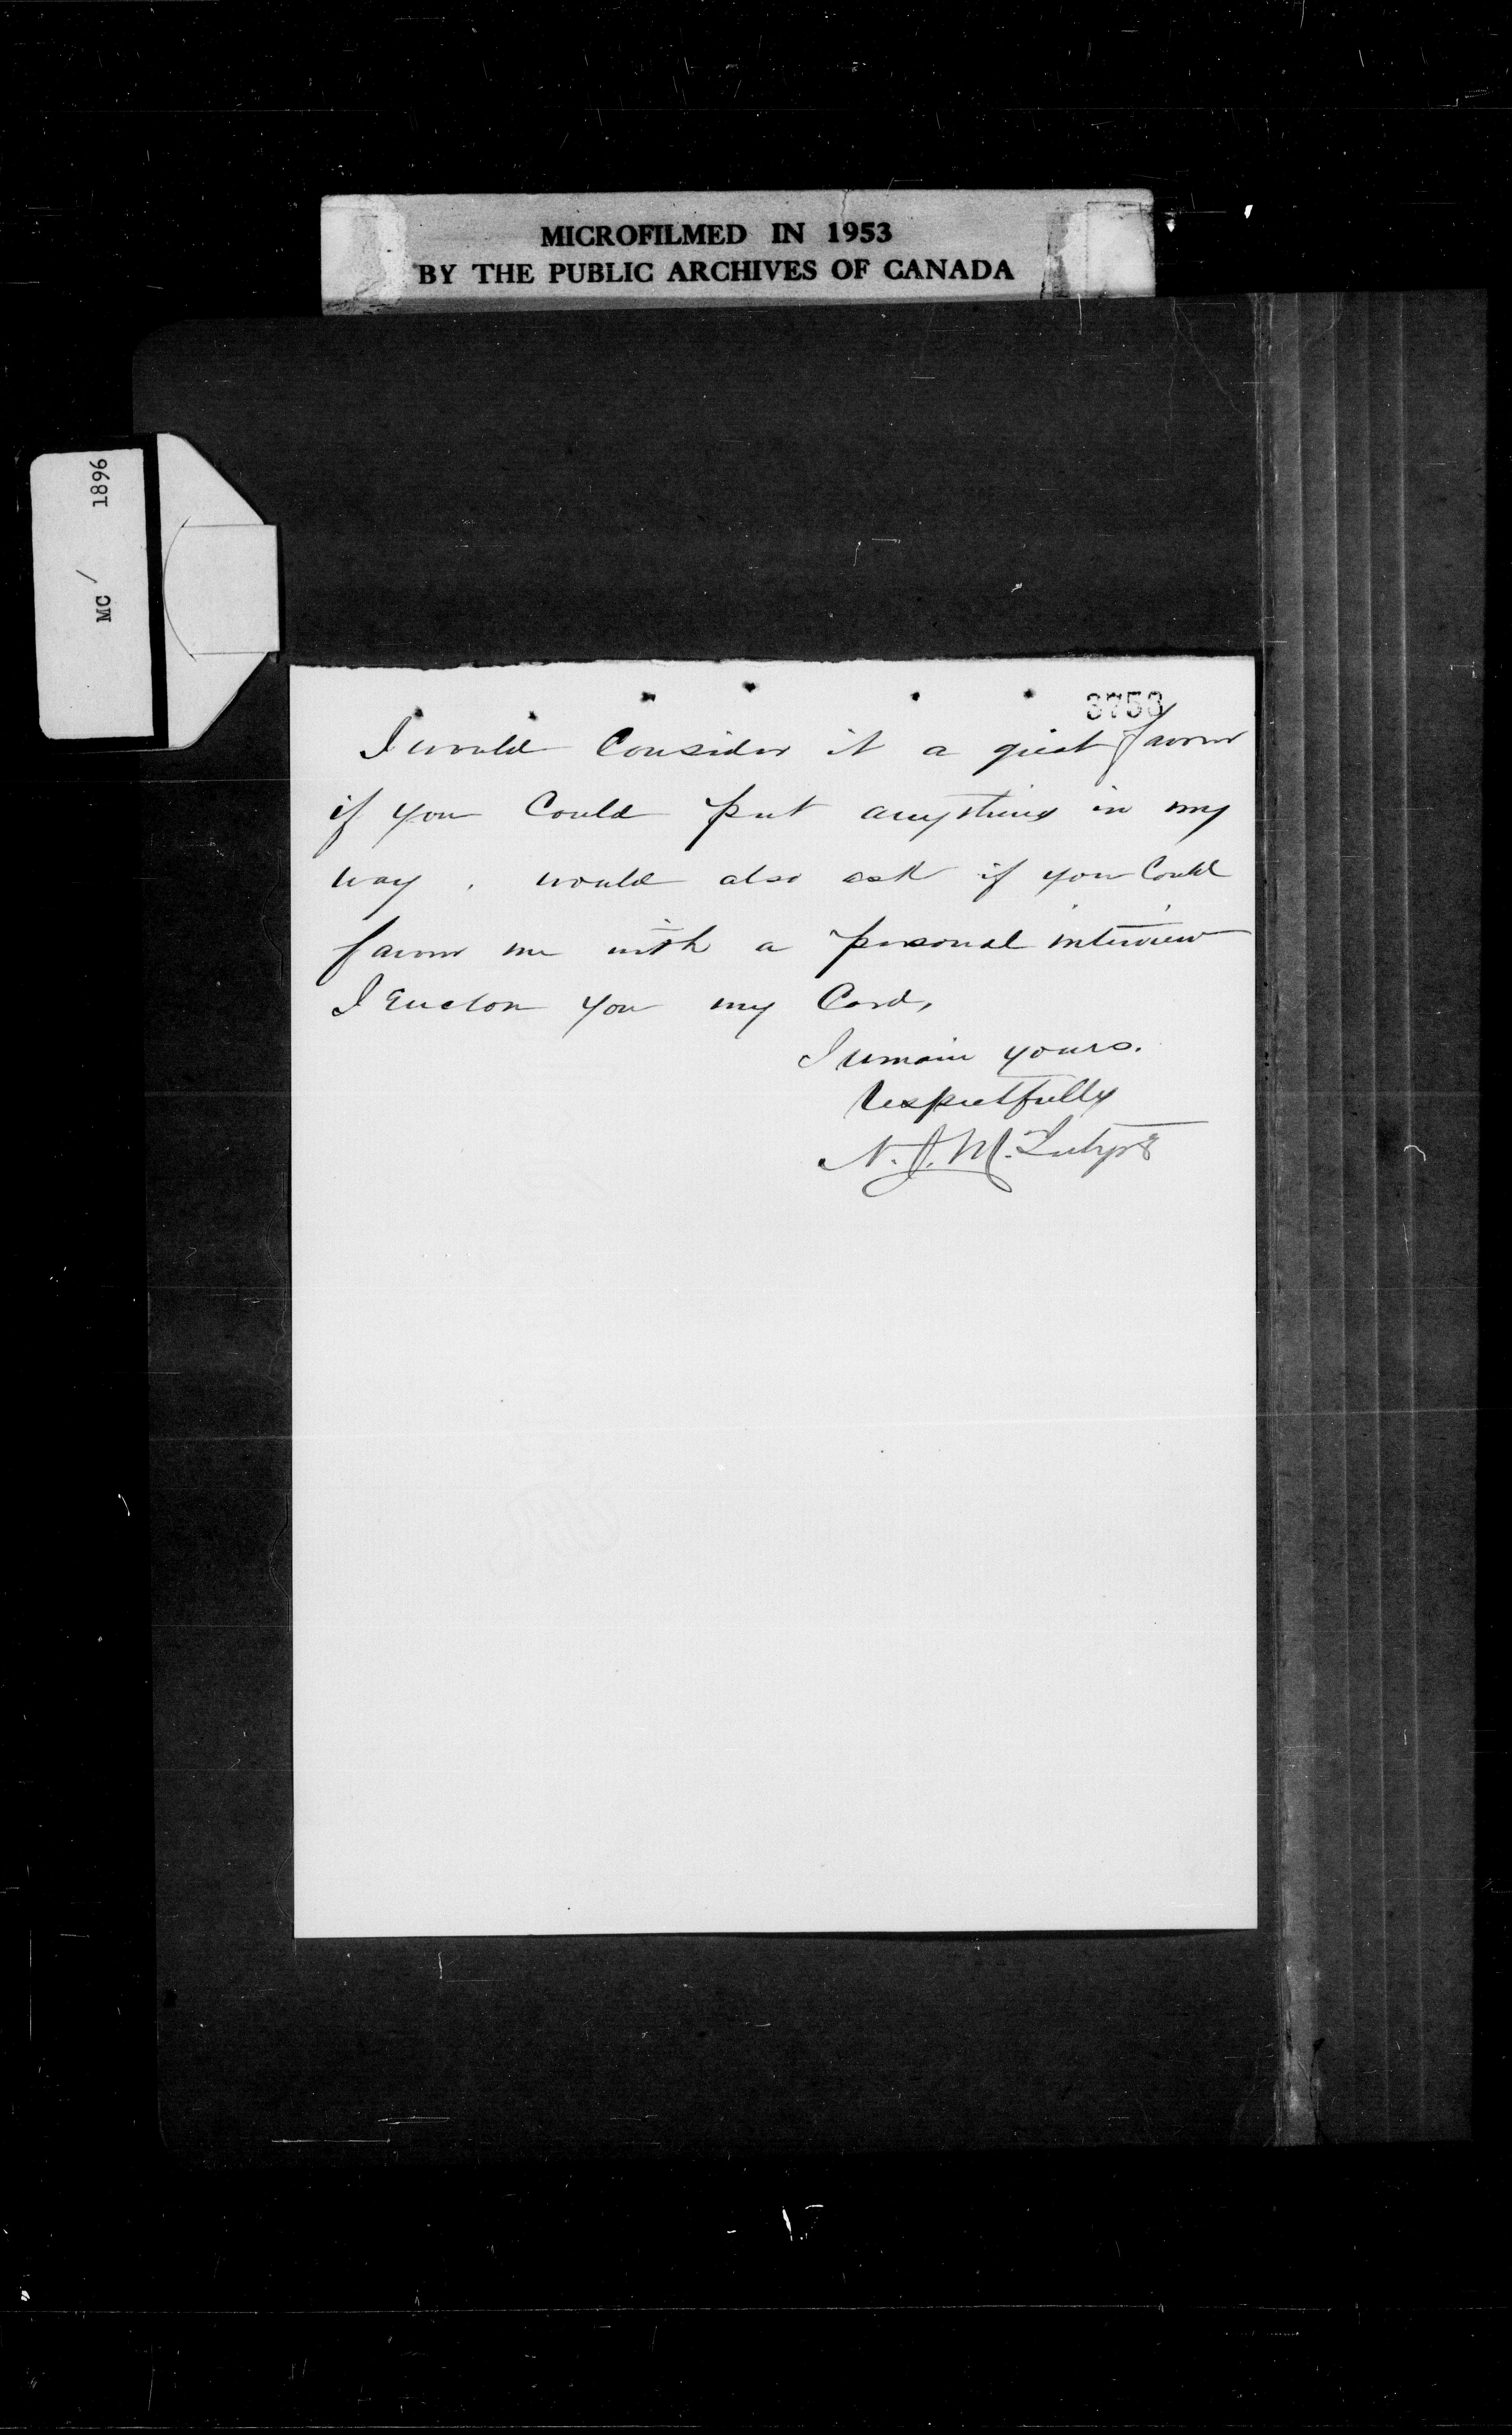 MICROFILMED IN 1953
BY THE PUBLIC ARCHIVES OF CANADA
MC / 1896
3753
I would Consider it a great favor
if you Could put anything in my
way. would also ask if you Could
favor me with a personal interview
I Enclose you my Card,
I remain yours.
Respectfully
N. J. McIntyre